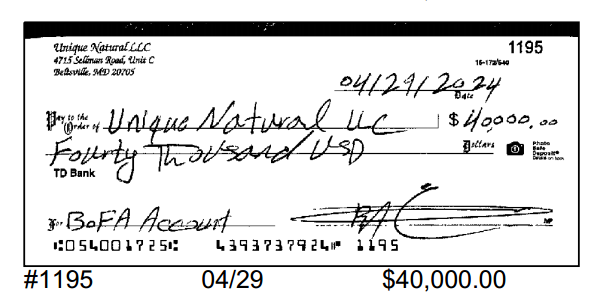 Unique Natural LLC
1195
4715 Sellman Road, Unit C
15-172/540
Beltsville, MD 20705
04/29/2024
Date
Pay to the
Order of Unique Natural LLC $ 40000.00
Fourty Thousand USD Dollars Photo Safe Deposit® Details on back
TD Bank
For BoFA Account
MP
⑆054001725⑆ 4393737924⑈ 1195
#1195 04/29 $40,000.00